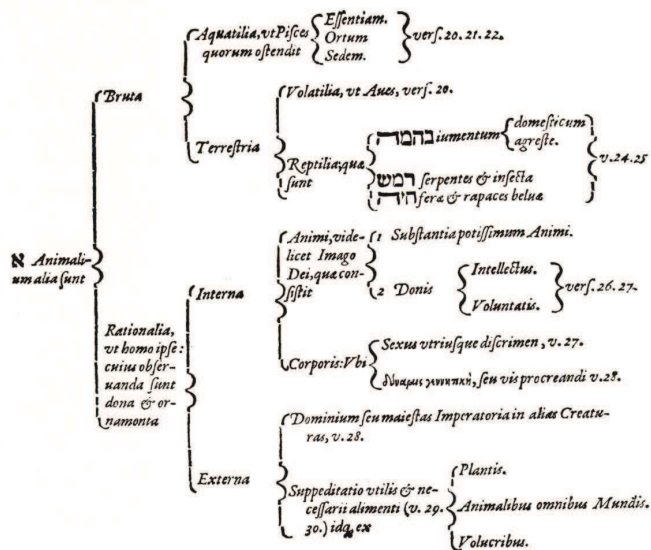 Aquatilia, vt Piſces
quorum oſtendit
Eſſentiam.
Ortum
Sedem.
verſ. 20. 21. 22.
Bruta
Volatilia, vt Aues, verſ. 20.
Terreſtria
Reptilia; quæ
ſunt
בהמה iumentum
domeſticum
agreſte.
רמש ſerpentes & inſecta
חיה feræ & rapaces beluæ
v. 24. 25
א Animali-
um alia ſunt
Rationalia,
vt homo ipſe:
cuius obſer-
uanda ſunt
dona & or-
namonta
Interna
Animi, vide-
licet Imago
Dei, quæ con-
ſiſtit
1 Subſtantia potiſſimum Animi.
2 Donis
Intellectus.
Voluntatis.
verſ. 26. 27.
Corporis: Vbi
Sexus vtriuſque diſcrimen, v. 27.
ſeu vis procreandi v. 28.
Externa
Dominium ſeu maieſtas Imperatoria in alias Creatu-
ras, v. 28.
Suppeditatio vtilis & ne-
ceſſarii alimenti (v. 29.
30.) idq; ex
Plantis.
Animalibus omnibus Mundis.
Volucribus.